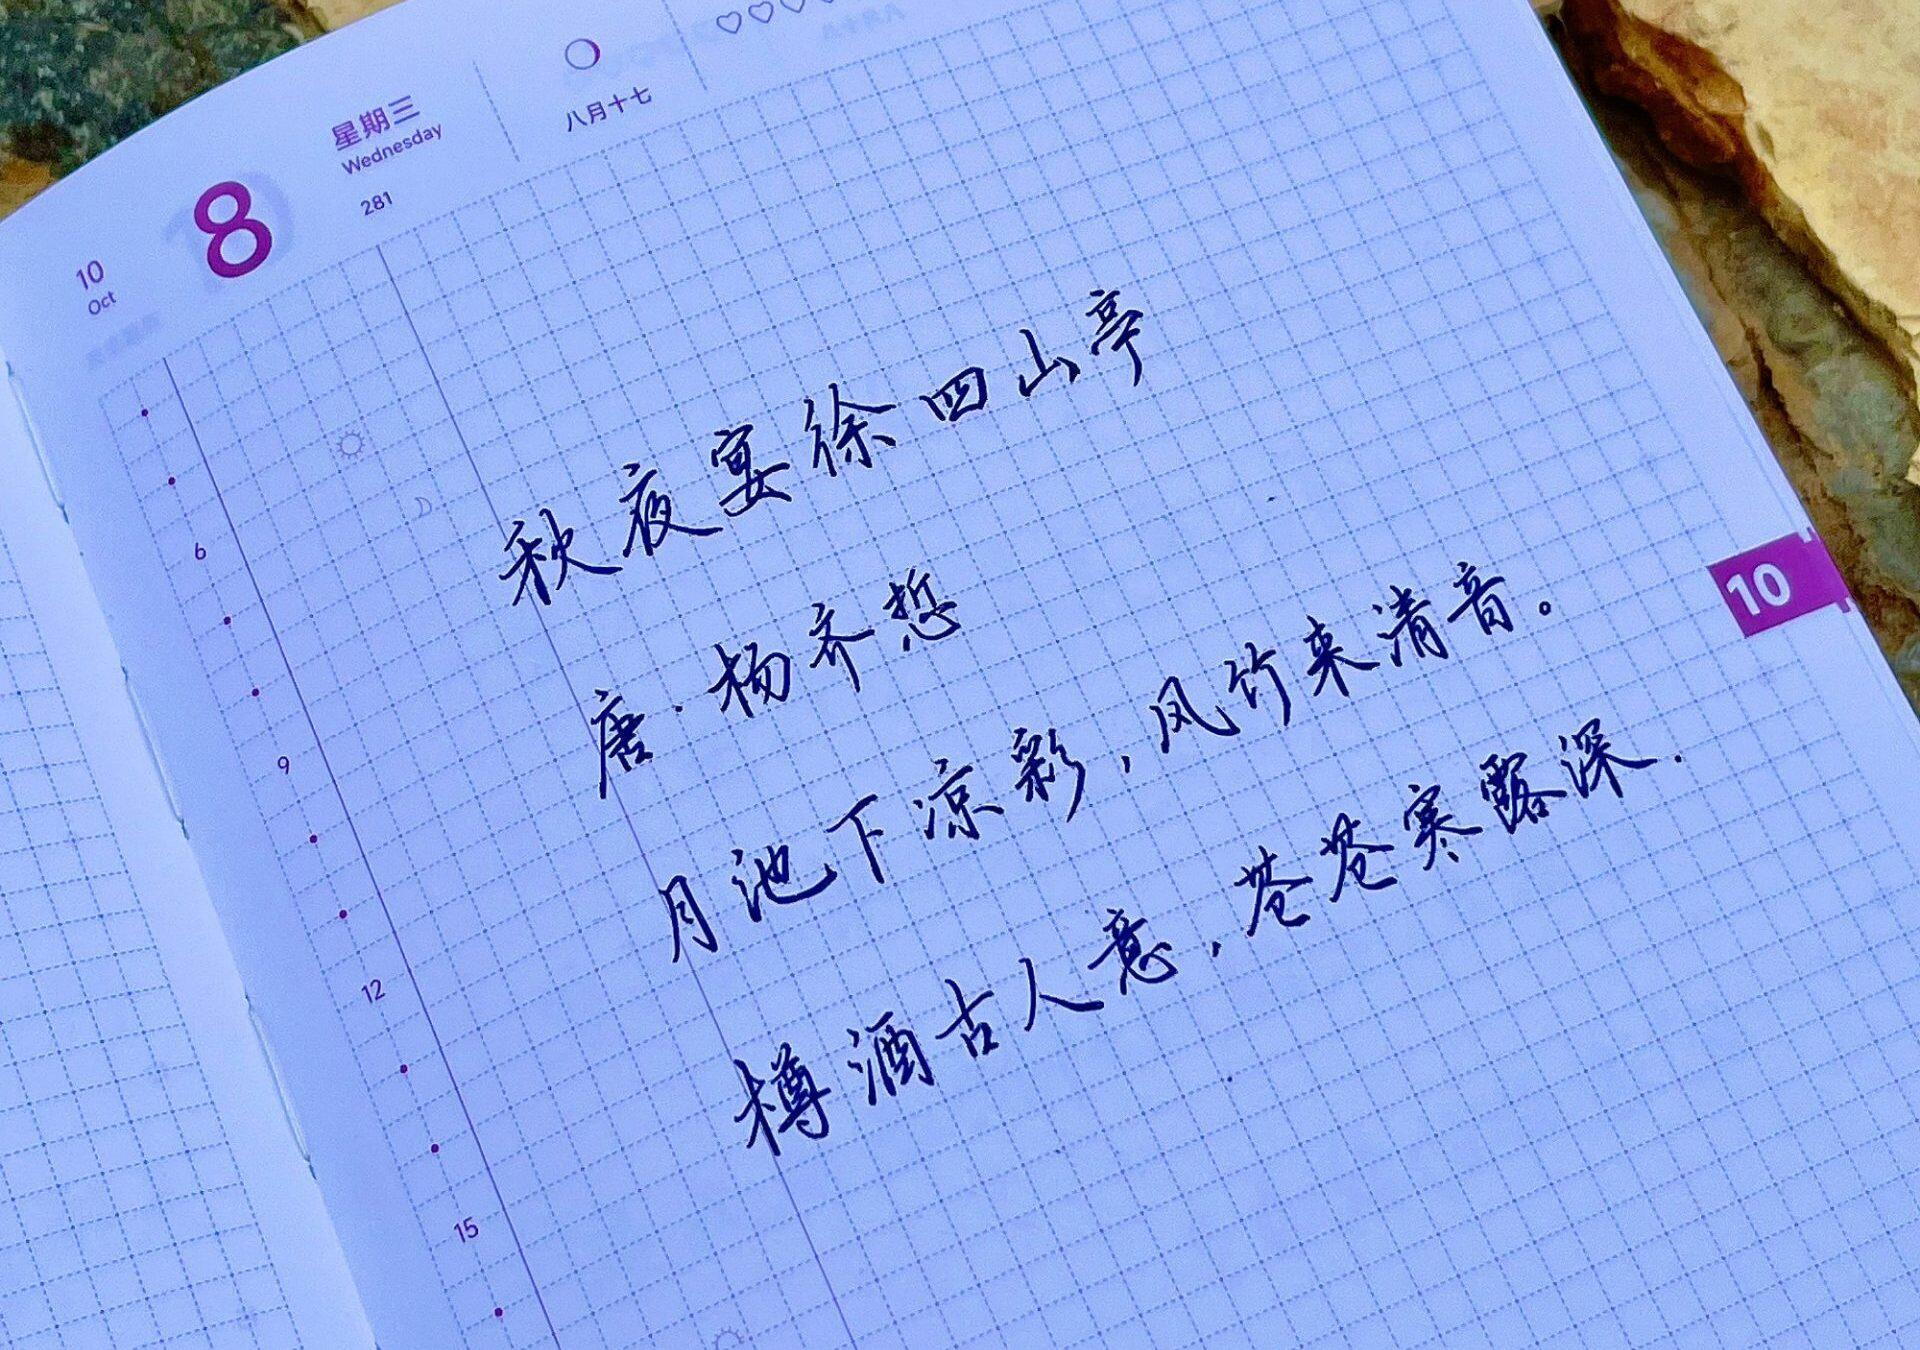 星期三
Wednesday
281
八月十七
♡♡♡
10
Oct
8
秋夜宴徐四山亭
唐·杨齐悊
月池下凉彩,风竹来清音。
樽酒古人意,苍苍寒露深.
6
9
12
15
10